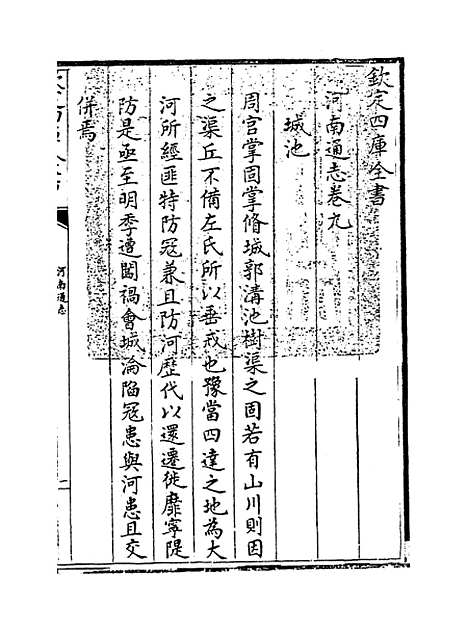 欽定四庫全書
河南通志卷九
城池
周官掌固掌脩城郭溝池樹渠之固若有山川則因
之渠丘不備左氏所以垂戒也豫當四達之地為大
河所經匪特防冦兼且防河歷代以還遷徙靡寧隄
防是亟至明季遭闖禍會城淪陷冦患與河患且交
併焉
河南通志